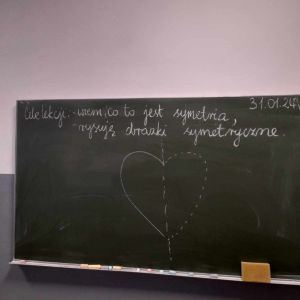 31.01.24r.
Cele lekcji: -wiem, co to jest symetria,
-rysuję obrazki symetryczne.